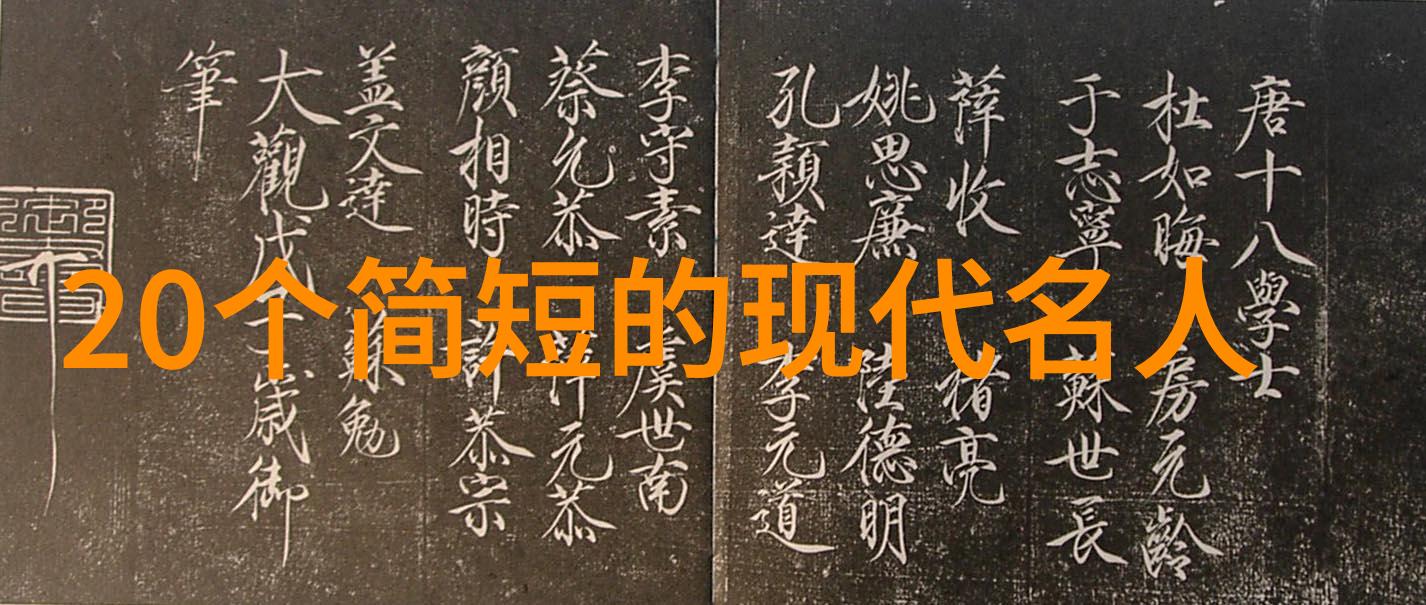 唐十八學士
杜如晦 房元齡
于志寧 蘇世長
薛收 褚亮
姚思廉 陸德明
孔穎達 李元道
李守素 虞世南
蔡允恭 薛元恭
顏相時 許恭宗
盖文達 蘇勉
大觀戊子歲御
筆
20个简短的现代名人